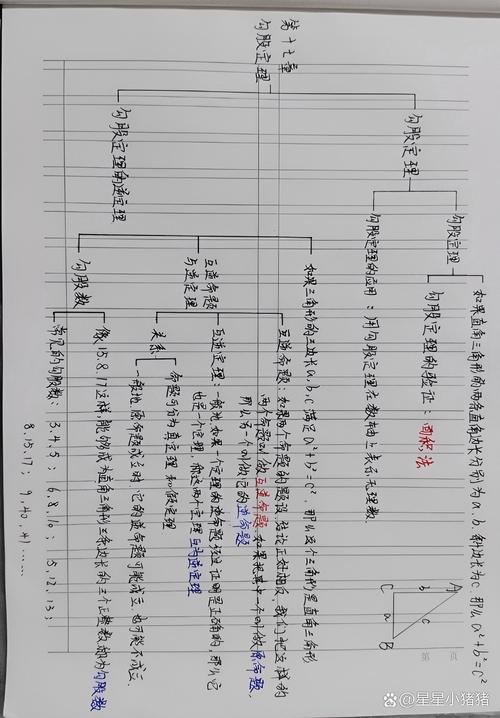 第十七章
勾股定理
勾股定理
勾股定理
如果直角三角形的两条直角边长分别为a.b.斜边长为c.那么a²+b²=c²
勾股定理的验证：面积法
勾股定理的应用：用勾股定理在数轴上表示无理数
A
b
c
C
a
B
勾股定理的逆定理
如果三角形的三边长a,b,c满足a²+b²=c²,那么这个三角形是直角三角形
互逆命题
与逆定理
互逆命题：如果两个命题的题设.结论正好相反.我们把这样的
两个命题叫做互逆命题.如果把其中一个叫做原命题,
那么另一个叫做它的逆命题
互逆定理：一般地如果一个定理的逆命题经过证明是正确的,那么它
也是一个定理.称这两个定理互为逆定理
关系
命题可分为真定理和假定理
一般地原命题成立时.它的逆命题可能成立.也可能不成立.
勾股数
像15.8.17这样,能够成为直角三角形三条边长的三个正整数,称为勾股数
常见的勾股数：3.4.5；6.8.10；5.12.13；
8.15.17. 9.40.41……
第 页
@星星小猪猪